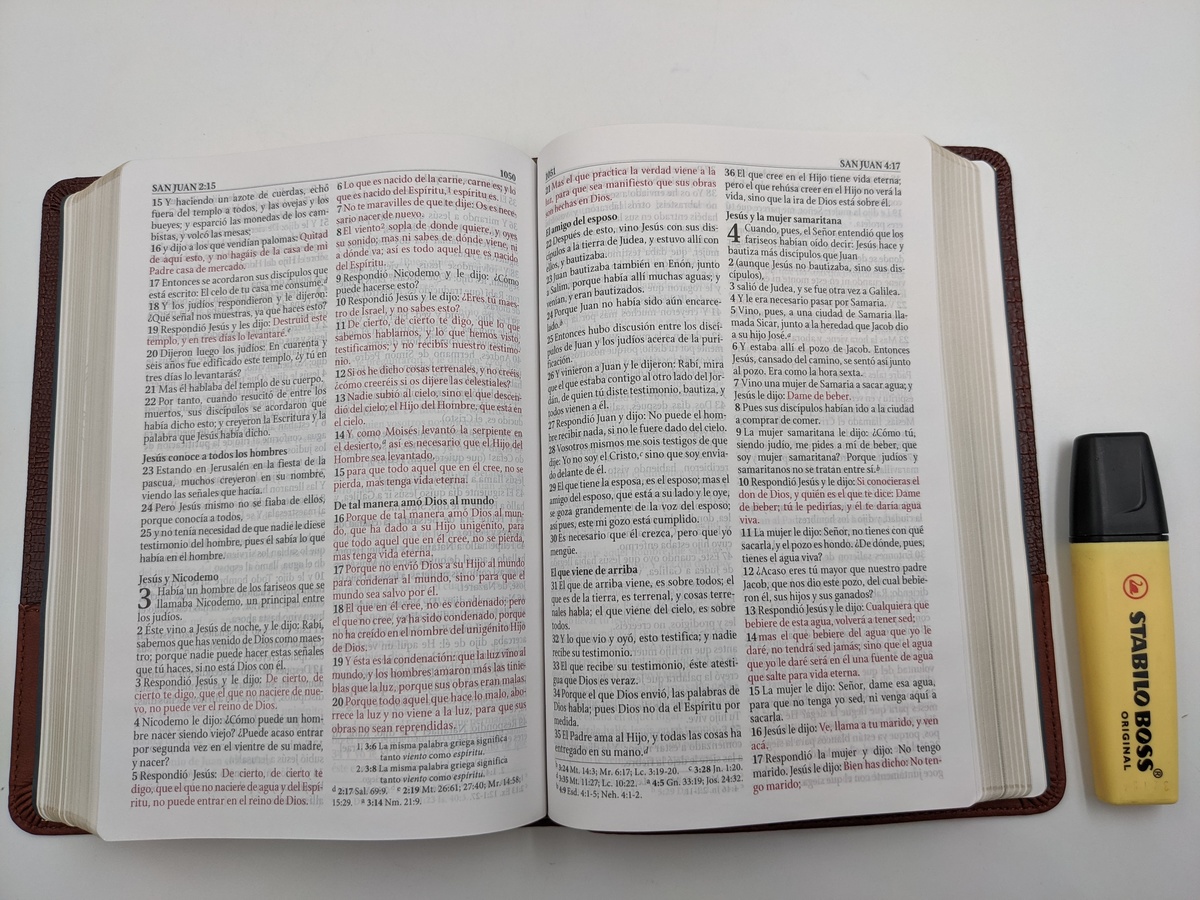 SAN JUAN 2:15
1050
15 Y haciendo un azote de cuerdas, echó
fuera del templo a todos, y las ovejas y los
bueyes; y esparció las monedas de los cam-
bistas, y volcó las mesas;
16 y dijo a los que vendían palomas: Quitad
de aquí esto, y no hagáis de la casa de mi
Padre casa de mercado.
17 Entonces se acordaron sus discípulos que
está escrito: El celo de tu casa me consume.d
18 Y los judíos respondieron y le dijeron:
¿Qué señal nos muestras, ya que haces esto?
19 Respondió Jesús y les dijo: Destruid este
templo, y en tres días lo levantaré.e
20 Dijeron luego los judíos: En cuarenta y
seis años fue edificado este templo, ¿y tú en
tres días lo levantarás?
21 Mas él hablaba del templo de su cuerpo.
22 Por tanto, cuando resucitó de entre los
muertos, sus discípulos se acordaron que
había dicho esto; y creyeron la Escritura y la
palabra que Jesús había dicho.
Jesús conoce a todos los hombres
23 Estando en Jerusalén en la fiesta de la
pascua, muchos creyeron en su nombre,
viendo las señales que hacía.
24 Pero Jesús mismo no se fiaba de ellos,
porque conocía a todos,
25 y no tenía necesidad de que nadie le diese
testimonio del hombre, pues él sabía lo que
había en el hombre.
Jesús y Nicodemo
3 Había un hombre de los fariseos que se
llamaba Nicodemo, un principal entre
los judíos.
2 Éste vino a Jesús de noche, y le dijo: Rabí,
sabemos que has venido de Dios como maes-
tro; porque nadie puede hacer estas señales
que tú haces, si no está Dios con él.
3 Respondió Jesús y le dijo: De cierto, de
cierto te digo, que el que no naciere de nue-
vo, no puede ver el reino de Dios.
4 Nicodemo le dijo: ¿Cómo puede un hom-
bre nacer siendo viejo? ¿Puede acaso entrar
por segunda vez en el vientre de su madre,
y nacer?
5 Respondió Jesús: De cierto, de cierto te
digo, que el que no naciere de agua y del Espí-
ritu, no puede entrar en el reino de Dios.
6 Lo que es nacido de la carne, carne es; y lo
que es nacido del Espíritu,1 espíritu es.
7 No te maravilles de que te dije: Os es nece-
sario nacer de nuevo.
8 El viento2 sopla de donde quiere, y oyes
su sonido; mas ni sabes de dónde viene, ni
a dónde va; así es todo aquel que es nacido
del Espíritu.
9 Respondió Nicodemo y le dijo: ¿Cómo
puede hacerse esto?
10 Respondió Jesús y le dijo: ¿Eres tú maes-
tro de Israel, y no sabes esto?
11 De cierto, de cierto te digo, que lo que
sabemos hablamos, y lo que hemos visto,
testificamos; y no recibís nuestro testimo-
nio.
12 Si os he dicho cosas terrenales, y no creéis,
¿cómo creeréis si os dijere las celestiales?
13 Nadie subió al cielo, sino el que descen-
dió del cielo; el Hijo del Hombre, que está en
el cielo.
14 Y como Moisés levantó la serpiente en
el desierto,a así es necesario que el Hijo del
Hombre sea levantado,
15 para que todo aquel que en él cree, no se
pierda, mas tenga vida eterna.
De tal manera amó Dios al mundo
16 Porque de tal manera amó Dios al mun-
do, que ha dado a su Hijo unigénito, para
que todo aquel que en él cree, no se pierda,
mas tenga vida eterna.
17 Porque no envió Dios a su Hijo al mundo
para condenar al mundo, sino para que el
mundo sea salvo por él.
18 El que en él cree, no es condenado; pero
el que no cree, ya ha sido condenado, porque
no ha creído en el nombre del unigénito Hijo
de Dios.
19 Y ésta es la condenación: que la luz vino al
mundo, y los hombres amaron más las tinie-
blas que la luz, porque sus obras eran malas.
20 Porque todo aquel que hace lo malo, abo-
rrece la luz y no viene a la luz, para que sus
obras no sean reprendidas.
1. 3:6 La misma palabra griega significa
tanto viento como espíritu.
2. 3:8 La misma palabra griega significa
tanto viento como espíritu.
d 2:17 Sal. 69:9. e 2:19 Mt. 26:61; 27:40; Mr. 14:58;
15:29. a 3:14 Nm. 21:9.
1051
SAN JUAN 4:17
21 Mas el que practica la verdad viene a la
luz, para que sea manifiesto que sus obras
son hechas en Dios.
El amigo del esposo
22 Después de esto, vino Jesús con sus dis-
cípulos a la tierra de Judea, y estuvo allí con
ellos, y bautizaba.
23 Juan bautizaba también en Enón, junto
a Salim, porque había allí muchas aguas; y
venían, y eran bautizados.
24 Porque Juan no había sido aún encarce-
lado.b
25 Entonces hubo discusión entre los discí-
pulos de Juan y los judíos acerca de la puri-
ficación.
26 Y vinieron a Juan y le dijeron: Rabí, mira
que el que estaba contigo al otro lado del Jor-
dán, de quien tú diste testimonio, bautiza, y
todos vienen a él.
27 Respondió Juan y dijo: No puede el hom-
bre recibir nada, si no le fuere dado del cielo.
28 Vosotros mismos me sois testigos de que
dije: Yo no soy el Cristo,c sino que soy envia-
do delante de él.
29 El que tiene la esposa, es el esposo; mas el
amigo del esposo, que está a su lado y le oye,
se goza grandemente de la voz del esposo;
así pues, este mi gozo está cumplido.
30 Es necesario que él crezca, pero que yo
mengüe.
El que viene de arriba
31 El que de arriba viene, es sobre todos; el
que es de la tierra, es terrenal, y cosas terre-
nales habla; el que viene del cielo, es sobre
todos.
32 Y lo que vio y oyó, esto testifica; y nadie
recibe su testimonio.
33 El que recibe su testimonio, éste atesti-
gua que Dios es veraz.
34 Porque el que Dios envió, las palabras de
Dios habla; pues Dios no da el Espíritu por
medida.
35 El Padre ama al Hijo, y todas las cosas ha
entregado en su mano.d
b 3:24 Mt. 14:3; Mr. 6:17; Lc. 3:19-20. c 3:28 Jn. 1:20.
d 3:35 Mt. 11:27; Lc. 10:22. a 4:5 Gn. 33:19; Jos. 24:32.
b 4:9 Esd. 4:1-5; Neh. 4:1-2.
36 El que cree en el Hijo tiene vida eterna;
pero el que rehúsa creer en el Hijo no verá la
vida, sino que la ira de Dios está sobre él.
Jesús y la mujer samaritana
4 Cuando, pues, el Señor entendió que los
fariseos habían oído decir: Jesús hace y
bautiza más discípulos que Juan
2 (aunque Jesús no bautizaba, sino sus dis-
cípulos),
3 salió de Judea, y se fue otra vez a Galilea.
4 Y le era necesario pasar por Samaria.
5 Vino, pues, a una ciudad de Samaria lla-
mada Sicar, junto a la heredad que Jacob dio
a su hijo José.a
6 Y estaba allí el pozo de Jacob. Entonces
Jesús, cansado del camino, se sentó así junto
al pozo. Era como la hora sexta.
7 Vino una mujer de Samaria a sacar agua; y
Jesús le dijo: Dame de beber.
8 Pues sus discípulos habían ido a la ciudad
a comprar de comer.
9 La mujer samaritana le dijo: ¿Cómo tú,
siendo judío, me pides a mí de beber, que
soy mujer samaritana? Porque judíos y
samaritanos no se tratan entre sí.b
10 Respondió Jesús y le dijo: Si conocieras el
don de Dios, y quién es el que te dice: Dame
de beber; tú le pedirías, y él te daría agua
viva.
11 La mujer le dijo: Señor, no tienes con qué
sacarla, y el pozo es hondo. ¿De dónde, pues,
tienes el agua viva?
12 ¿Acaso eres tú mayor que nuestro padre
Jacob, que nos dio este pozo, del cual bebie-
ron él, sus hijos y sus ganados?
13 Respondió Jesús y le dijo: Cualquiera que
bebiere de esta agua, volverá a tener sed;
14 mas el que bebiere del agua que yo le
daré, no tendrá sed jamás; sino que el agua
que yo le daré será en él una fuente de agua
que salte para vida eterna.
15 La mujer le dijo: Señor, dame esa agua,
para que no tenga yo sed, ni venga aquí a
sacarla.
16 Jesús le dijo: Ve, llama a tu marido, y ven
acá.
17 Respondió la mujer y dijo: No tengo
marido. Jesús le dijo: Bien has dicho: No ten-
go marido;
STABILO BOSS®
ORIGINAL